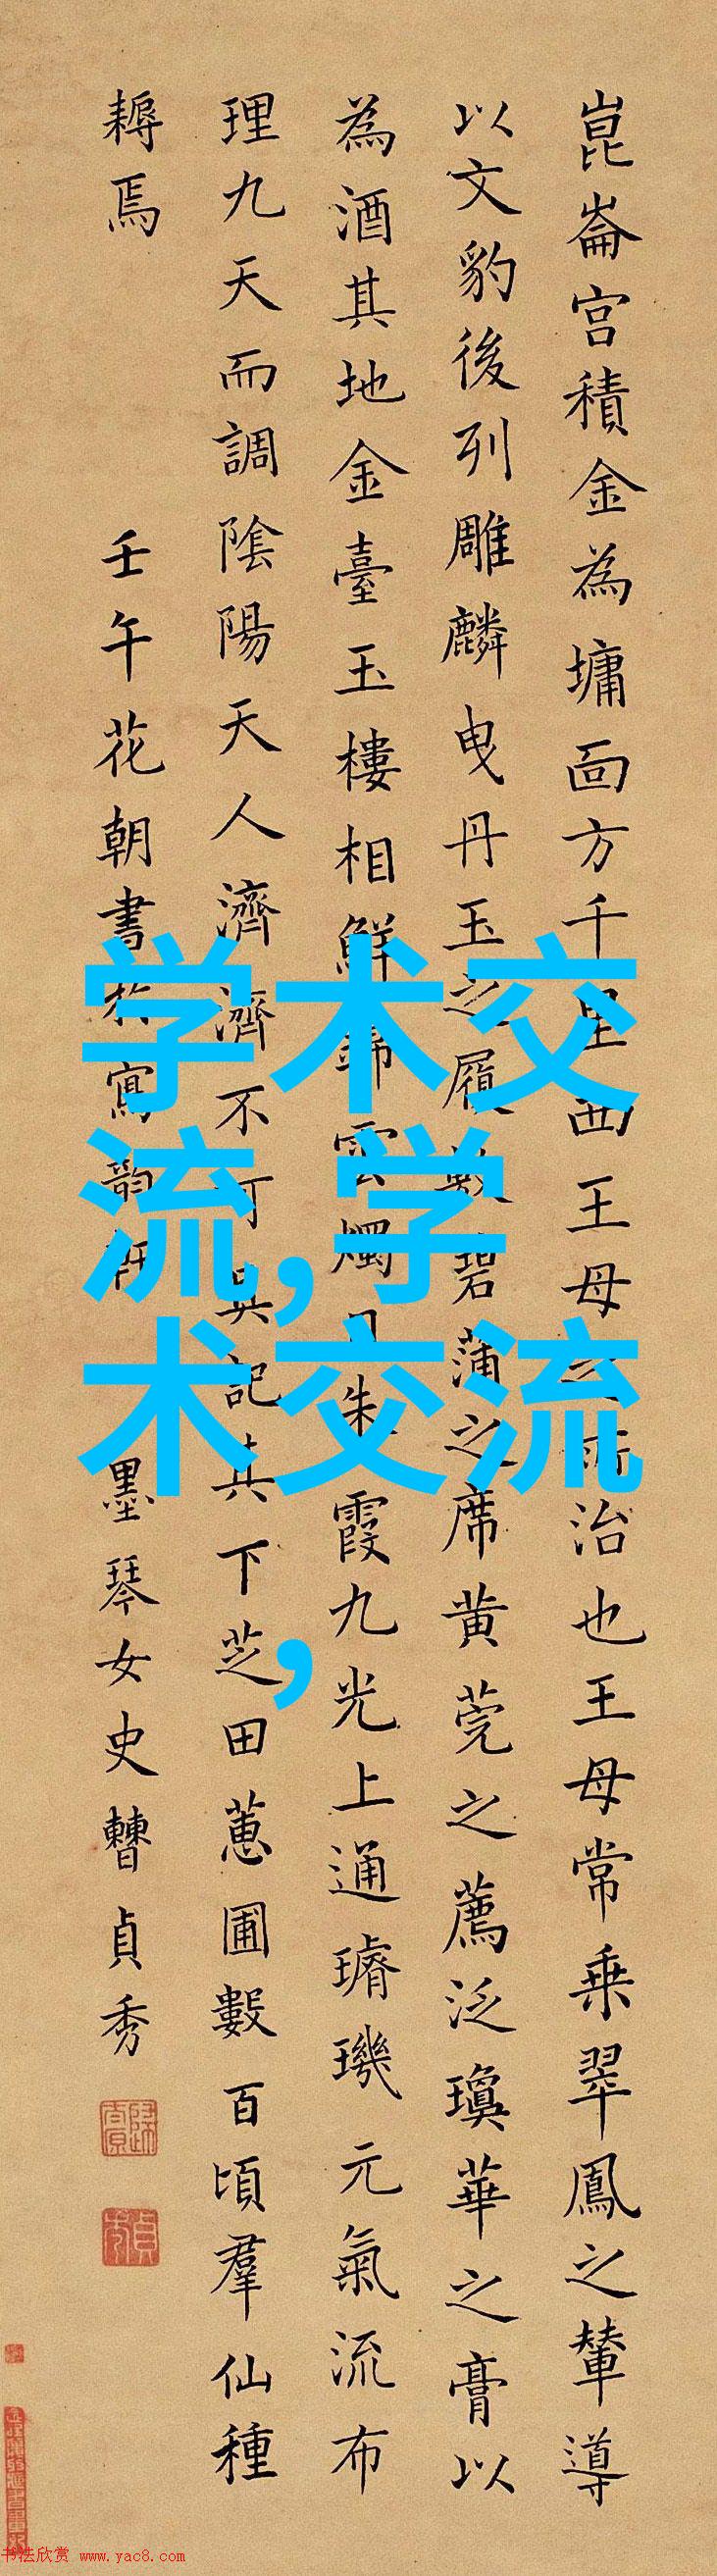 崑崙宫積金為墉面方千里西王母之所治也王母常乗翠鳳之輦導
以文豹後列雕麟曳丹玉之履敷碧蒲之席黄莞之薦泛瓊華之膏以
為酒其地金臺玉樓相鮮 雲燭日朱霞九光上通璿璣元氣流布
理九天而調陰陽天人濟濟不可具記其下芝田蕙圃數百頃羣仙種
耨焉
壬午花朝書於寫韵軒 墨琴女史曹貞秀
学术交
流,学
术交流
,
书法欣赏 www.yac8.com